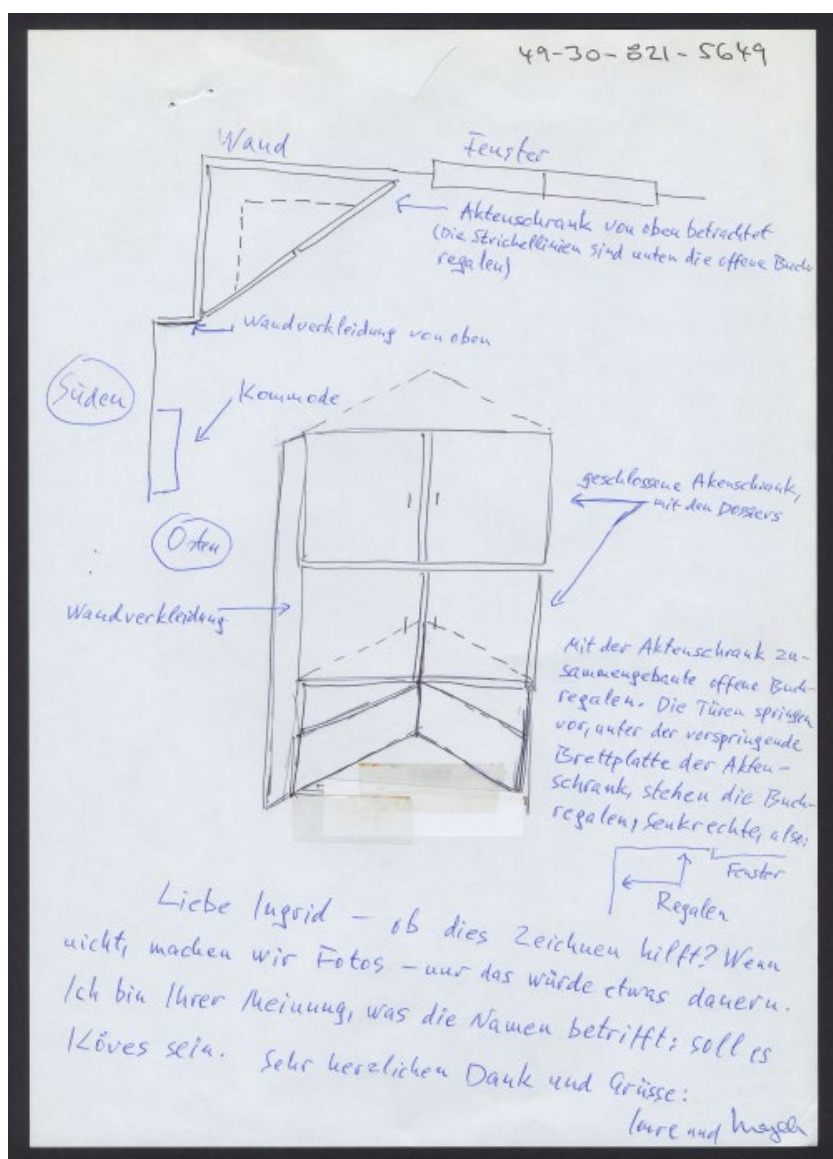 49-30-821-5649
Wand
Fenster
Aktenschrank von oben betrachtet
(Die Strichellinien sind unten die offene Buch
regalen)
Wandverkleidung von oben
Süden
Kommode
geschlossene Akenschrank,
mit den Dossiers
Osten
Wandverkleidung
Mit der Aktenschrank zu-
sammengebaute offene Buch-
regalen. Die Türen springen
vor, unter der vorspringende
Brettplatte der Akten-
schrank, stehen die Buch-
regalen, senkrechte, also:
Fenster
Regalen
Liebe Ingrid – ob dies Zeichnen hilft? Wenn
nicht, machen wir Fotos – nur das würde etwas dauern.
Ich bin Ihrer Meinung, was die Namen betrifft: soll es
Köves sein. Sehr herzlichen Dank und Grüsse:
Imre und Magda